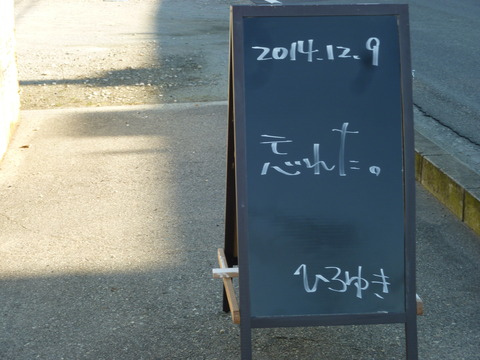 2014.12.9
忘れた。
ひろゆき